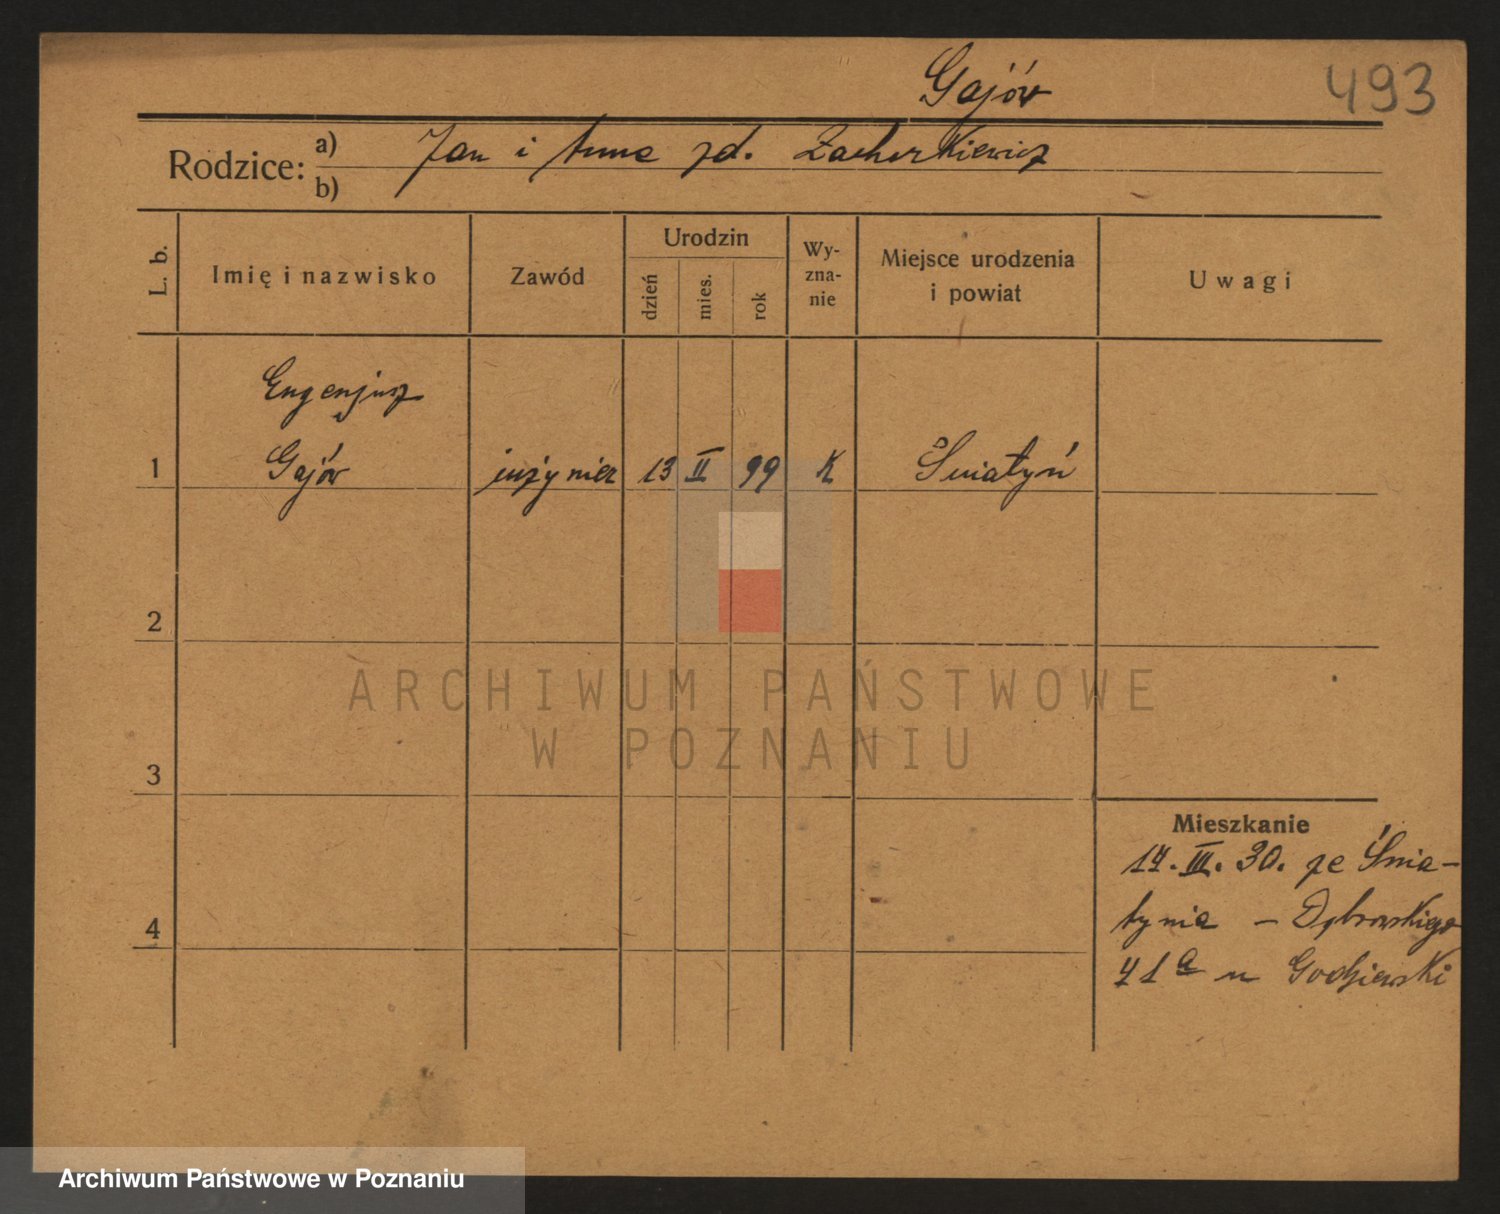 Gajów
493
Rodzice: a) Jan i Anna zd. Zacharkiewicz
b)
L. b.
Imię i nazwisko
Zawód
Urodzin
dzień
mies.
rok
Wy-
zna-
nie
Miejsce urodzenia
i powiat
Uwagi
Eugenjusz
1 Gajów inżynier 13 II 99 K Śniatyń
2
3
4
Mieszkanie
14. III. 30. ze Śnia-
tynia – Dąbrowskiego
41a u Godziewski
ARCHIWUM PAŃSTWOWE
W POZNANIU
Archiwum Państwowe w Poznaniu